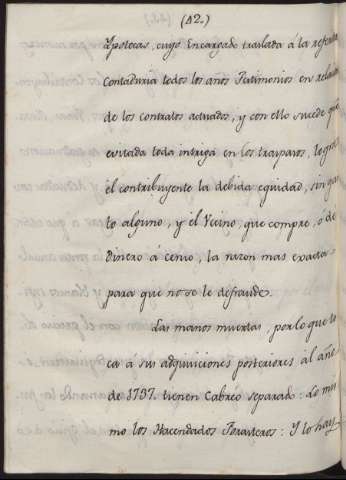 (42.)
Ypotecas, cuyo Encargado traslada á la referida
contaduria todos los años Testimonios en relacion
de los contratos actuados, y con ello sucede que
evitada toda intriga en los traspasos, logra
el contribuyente la debida eqüidad, sin gas-
to alguno, y el Vecino que compre, ó de
Dinero á censo, la razon mas exacta
para que no se le defraude.
Las manos muertas, por lo que to
ca á sus adquiciones posteriores al año
de 1737. tienen Cabréo separado: Lo mis
mo los Hacendados Forasteros: Y lo hay